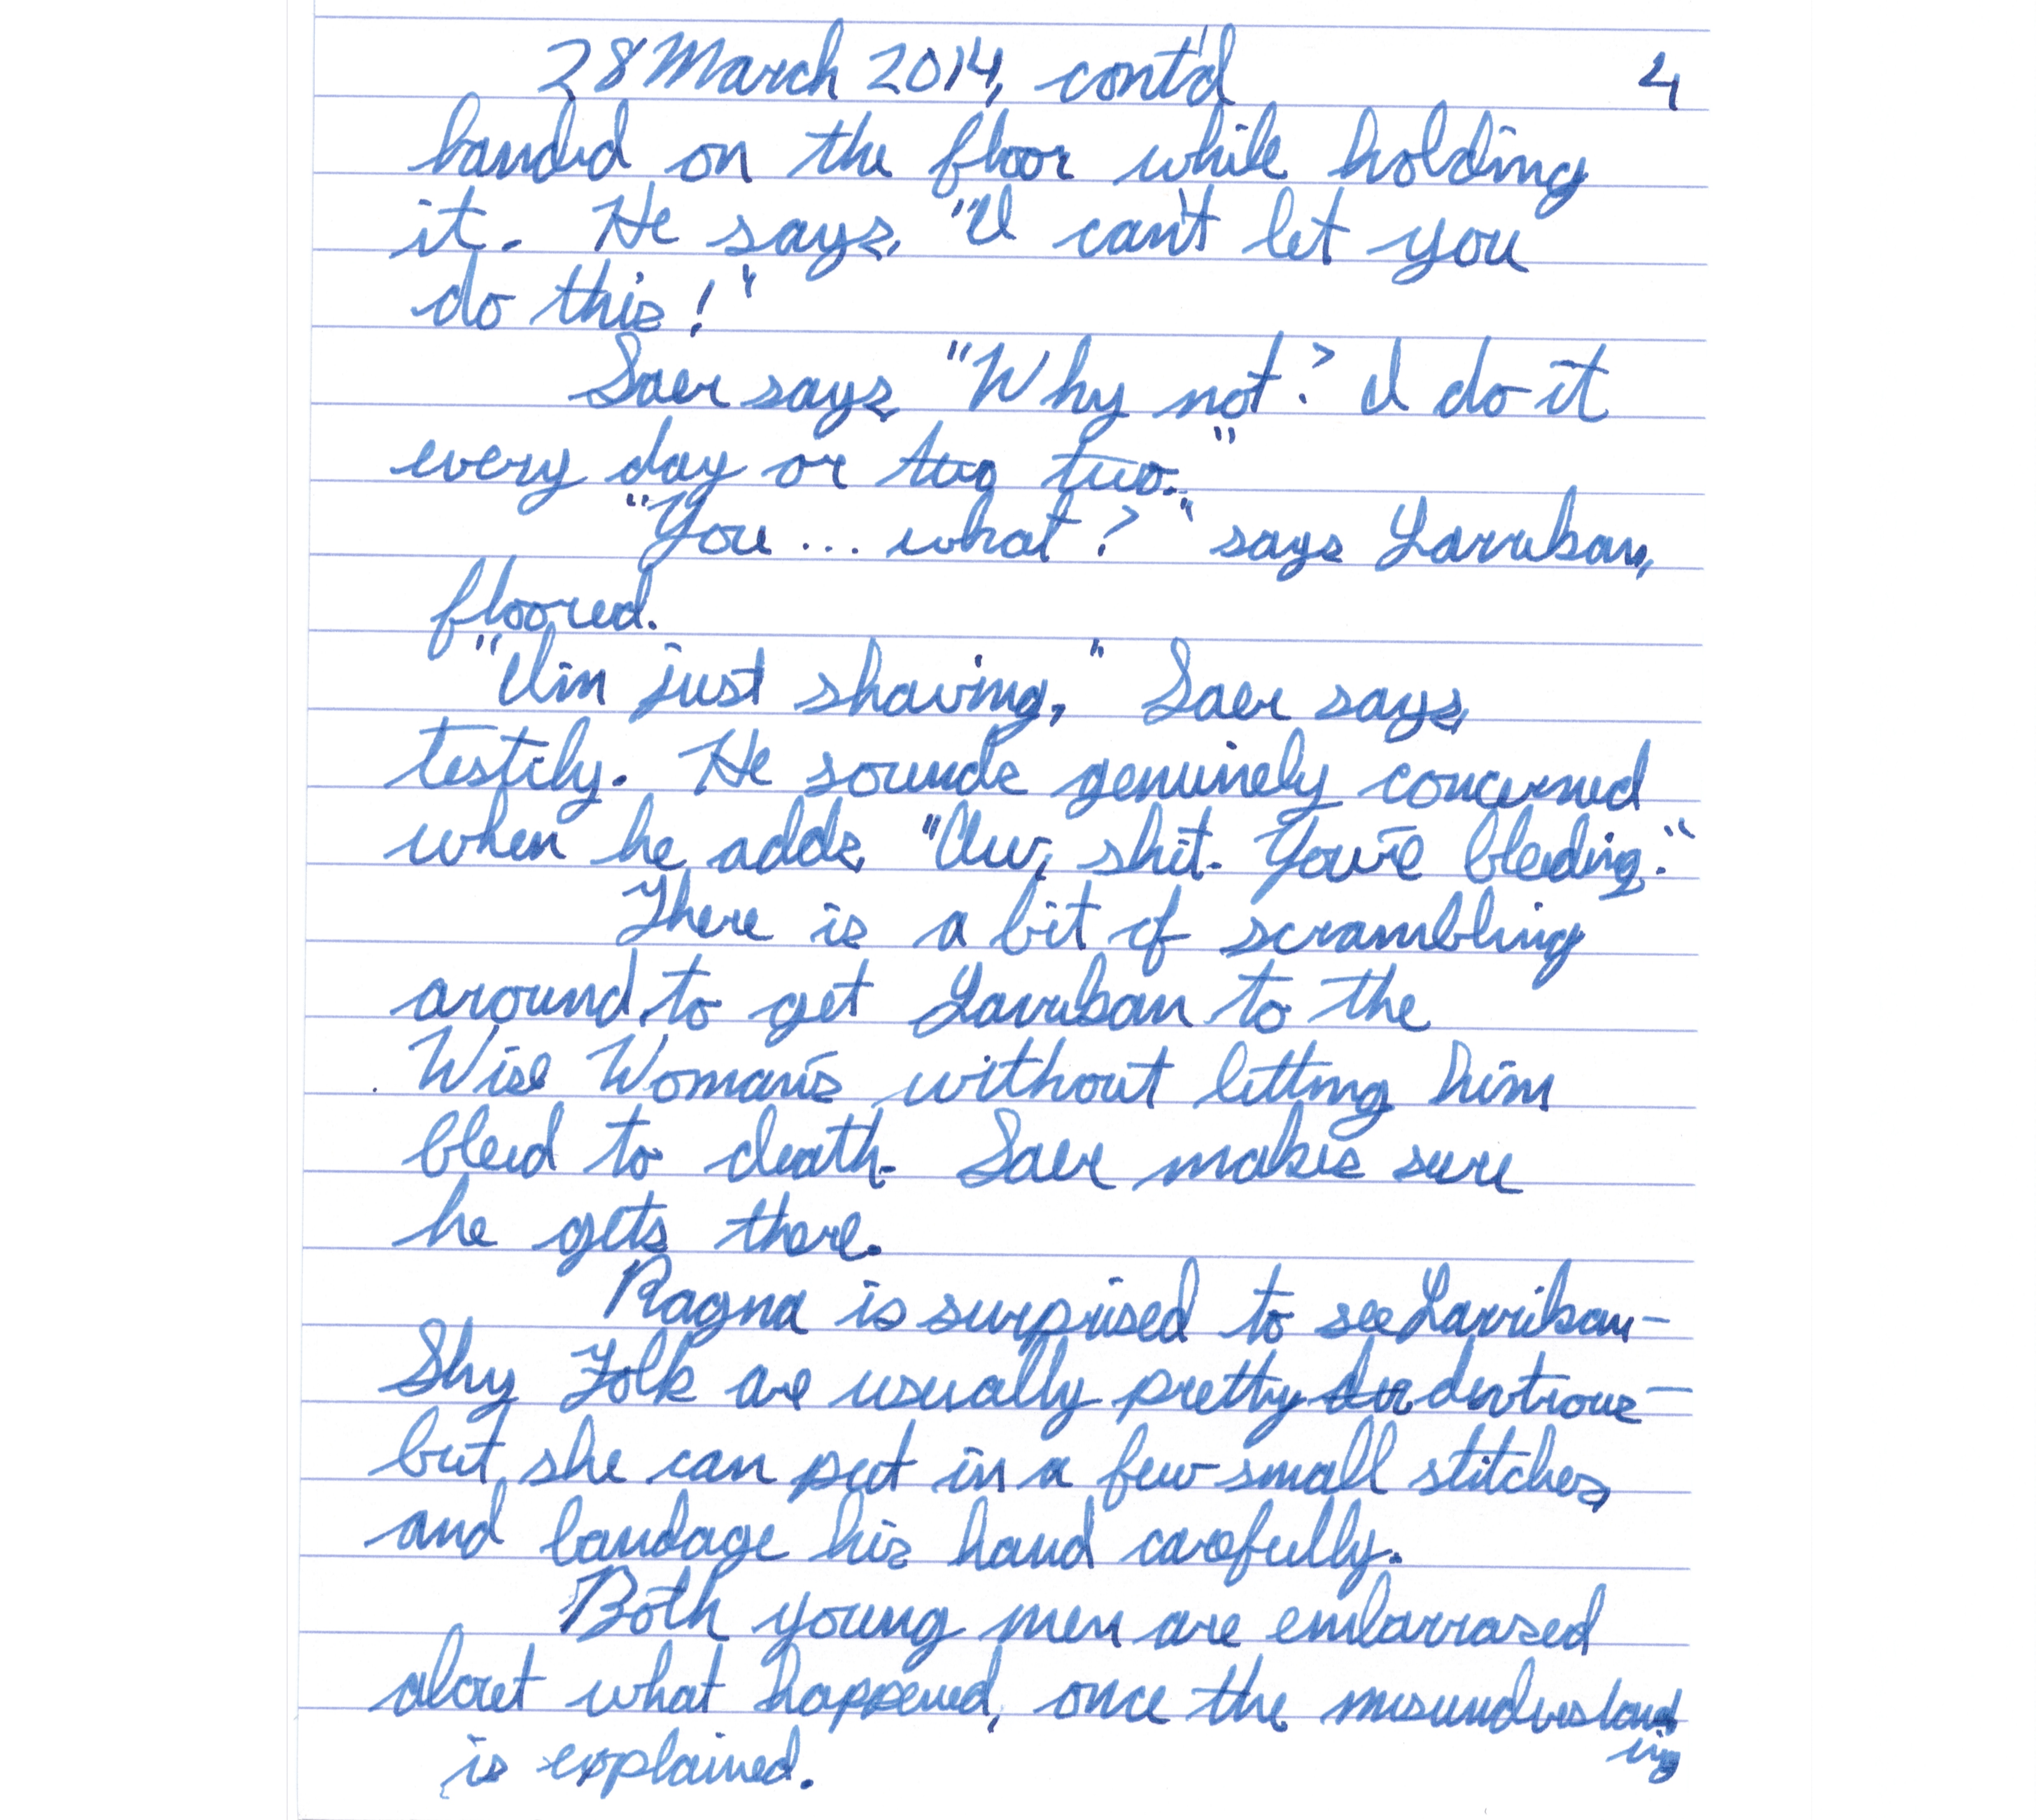 28 March 2014, cont'd 4
handed on the floor while holding
it. He says, "I can't let you
do this!"
Saer says, "Why not? I do it
every day or two two."
"You... what?" says Larriban,
floored.
"I'm just shaving," Saer says,
testily. He sounds genuinely concerned
when he adds, "Aw, shit. You're bleeding."
There is a bit of scrambling
around, to get Larriban to the
Wise Woman's without letting him
bleed to death. Saer makes sure
he gets there.
Ragna is surprised to see Larriban –
Shy Folk are usually pretty dextrous –
but she can put in a few small stitches,
and bandage his hand carefully.
Both young men are embarrased
about what happened, once the misunderstand
ing
is explained.